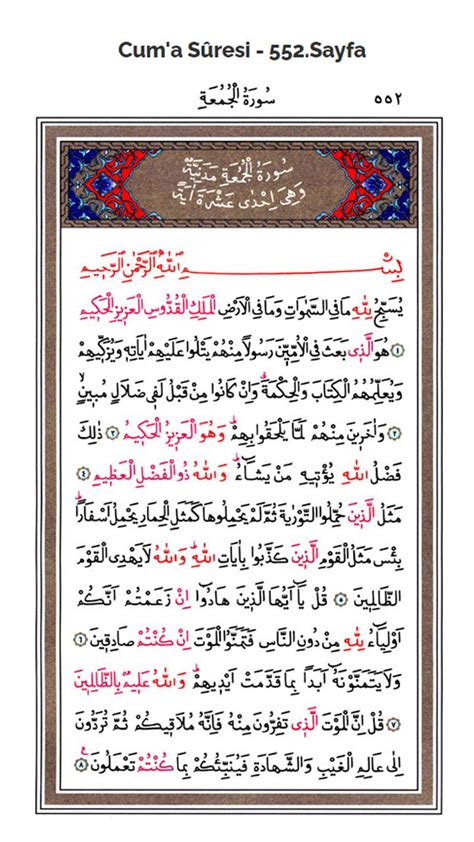 Cum'a Sûresi - 552.Sayfa
سُورَةُ الْجُمُعَةِ ٥٥٢
سُورَةُ الْجُمُعَةِ مَدَنِيَّةٌ
وَهِيَ اِحْدٰى عَشْرَةَ اٰيَةً
بِسْمِ اللّٰهِ الرَّحْمٰنِ الرَّحِيمِ
يُسَبِّحُ لِلّٰهِ مَا فِي السَّمٰوَاتِ وَمَا فِي الْاَرْضِ الْمَلِكِ الْقُدُّوسِ الْعَزِيزِ الْحَكِيمِ
﴿١﴾ هُوَ الَّذِي بَعَثَ فِي الْاُمِّيّٖنَ رَسُولًا مِنْهُمْ يَتْلُوا عَلَيْهِمْ اٰيَاتِهٖ وَيُزَكّٖيهِمْ
وَيُعَلِّمُهُمُ الْكِتَابَ وَالْحِكْمَةَۗ وَاِنْ كَانُوا مِنْ قَبْلُ لَفٖي ضَلَالٍ مُبٖينٍۙ
﴿٢﴾ وَاٰخَرٖينَ مِنْهُمْ لَمَّا يَلْحَقُوا بِهِمْۜ وَهُوَ الْعَزٖيزُ الْحَكٖيمُ ﴿٣﴾ ذٰلِكَ
فَضْلُ اللّٰهِ يُؤْتٖيهِ مَنْ يَشَٓاءُۜ وَاللّٰهُ ذُو الْفَضْلِ الْعَظٖيمِ ﴿٤﴾
مَثَلُ الَّذٖينَ حُمِّلُوا التَّوْرٰيةَ ثُمَّ لَمْ يَحْمِلُوهَا كَمَثَلِ الْحِمَارِ يَحْمِلُ اَسْفَارًاۜ
بِئْسَ مَثَلُ الْقَوْمِ الَّذٖينَ كَذَّبُوا بِاٰيَاتِ اللّٰهِۜ وَاللّٰهُ لَا يَهْدِي الْقَوْمَ
الظَّالِمٖينَ ﴿٥﴾ قُلْ يَٓا اَيُّهَا الَّذٖينَ هَادُٓوا اِنْ زَعَمْتُمْ اَنَّكُمْ
اَوْلِيَٓاءُ لِلّٰهِ مِنْ دُونِ النَّاسِ فَتَمَنَّوُا الْمَوْتَ اِنْ كُنْتُمْ صَادِقٖينَ ﴿٦﴾
وَلَا يَتَمَنَّوْنَهُٓ اَبَدًا بِمَا قَدَّمَتْ اَيْدٖيهِمْۜ وَاللّٰهُ عَلٖيمٌ بِالظَّالِمٖينَ
﴿٧﴾ قُلْ اِنَّ الْمَوْتَ الَّذٖي تَفِرُّونَ مِنْهُ فَاِنَّهُ مُلَاقٖيكُمْ ثُمَّ تُرَدُّونَ
اِلٰى عَالِمِ الْغَيْبِ وَالشَّهَادَةِ فَيُنَبِّئُكُمْ بِمَا كُنْتُمْ تَعْمَلُونَ ﴿٨﴾